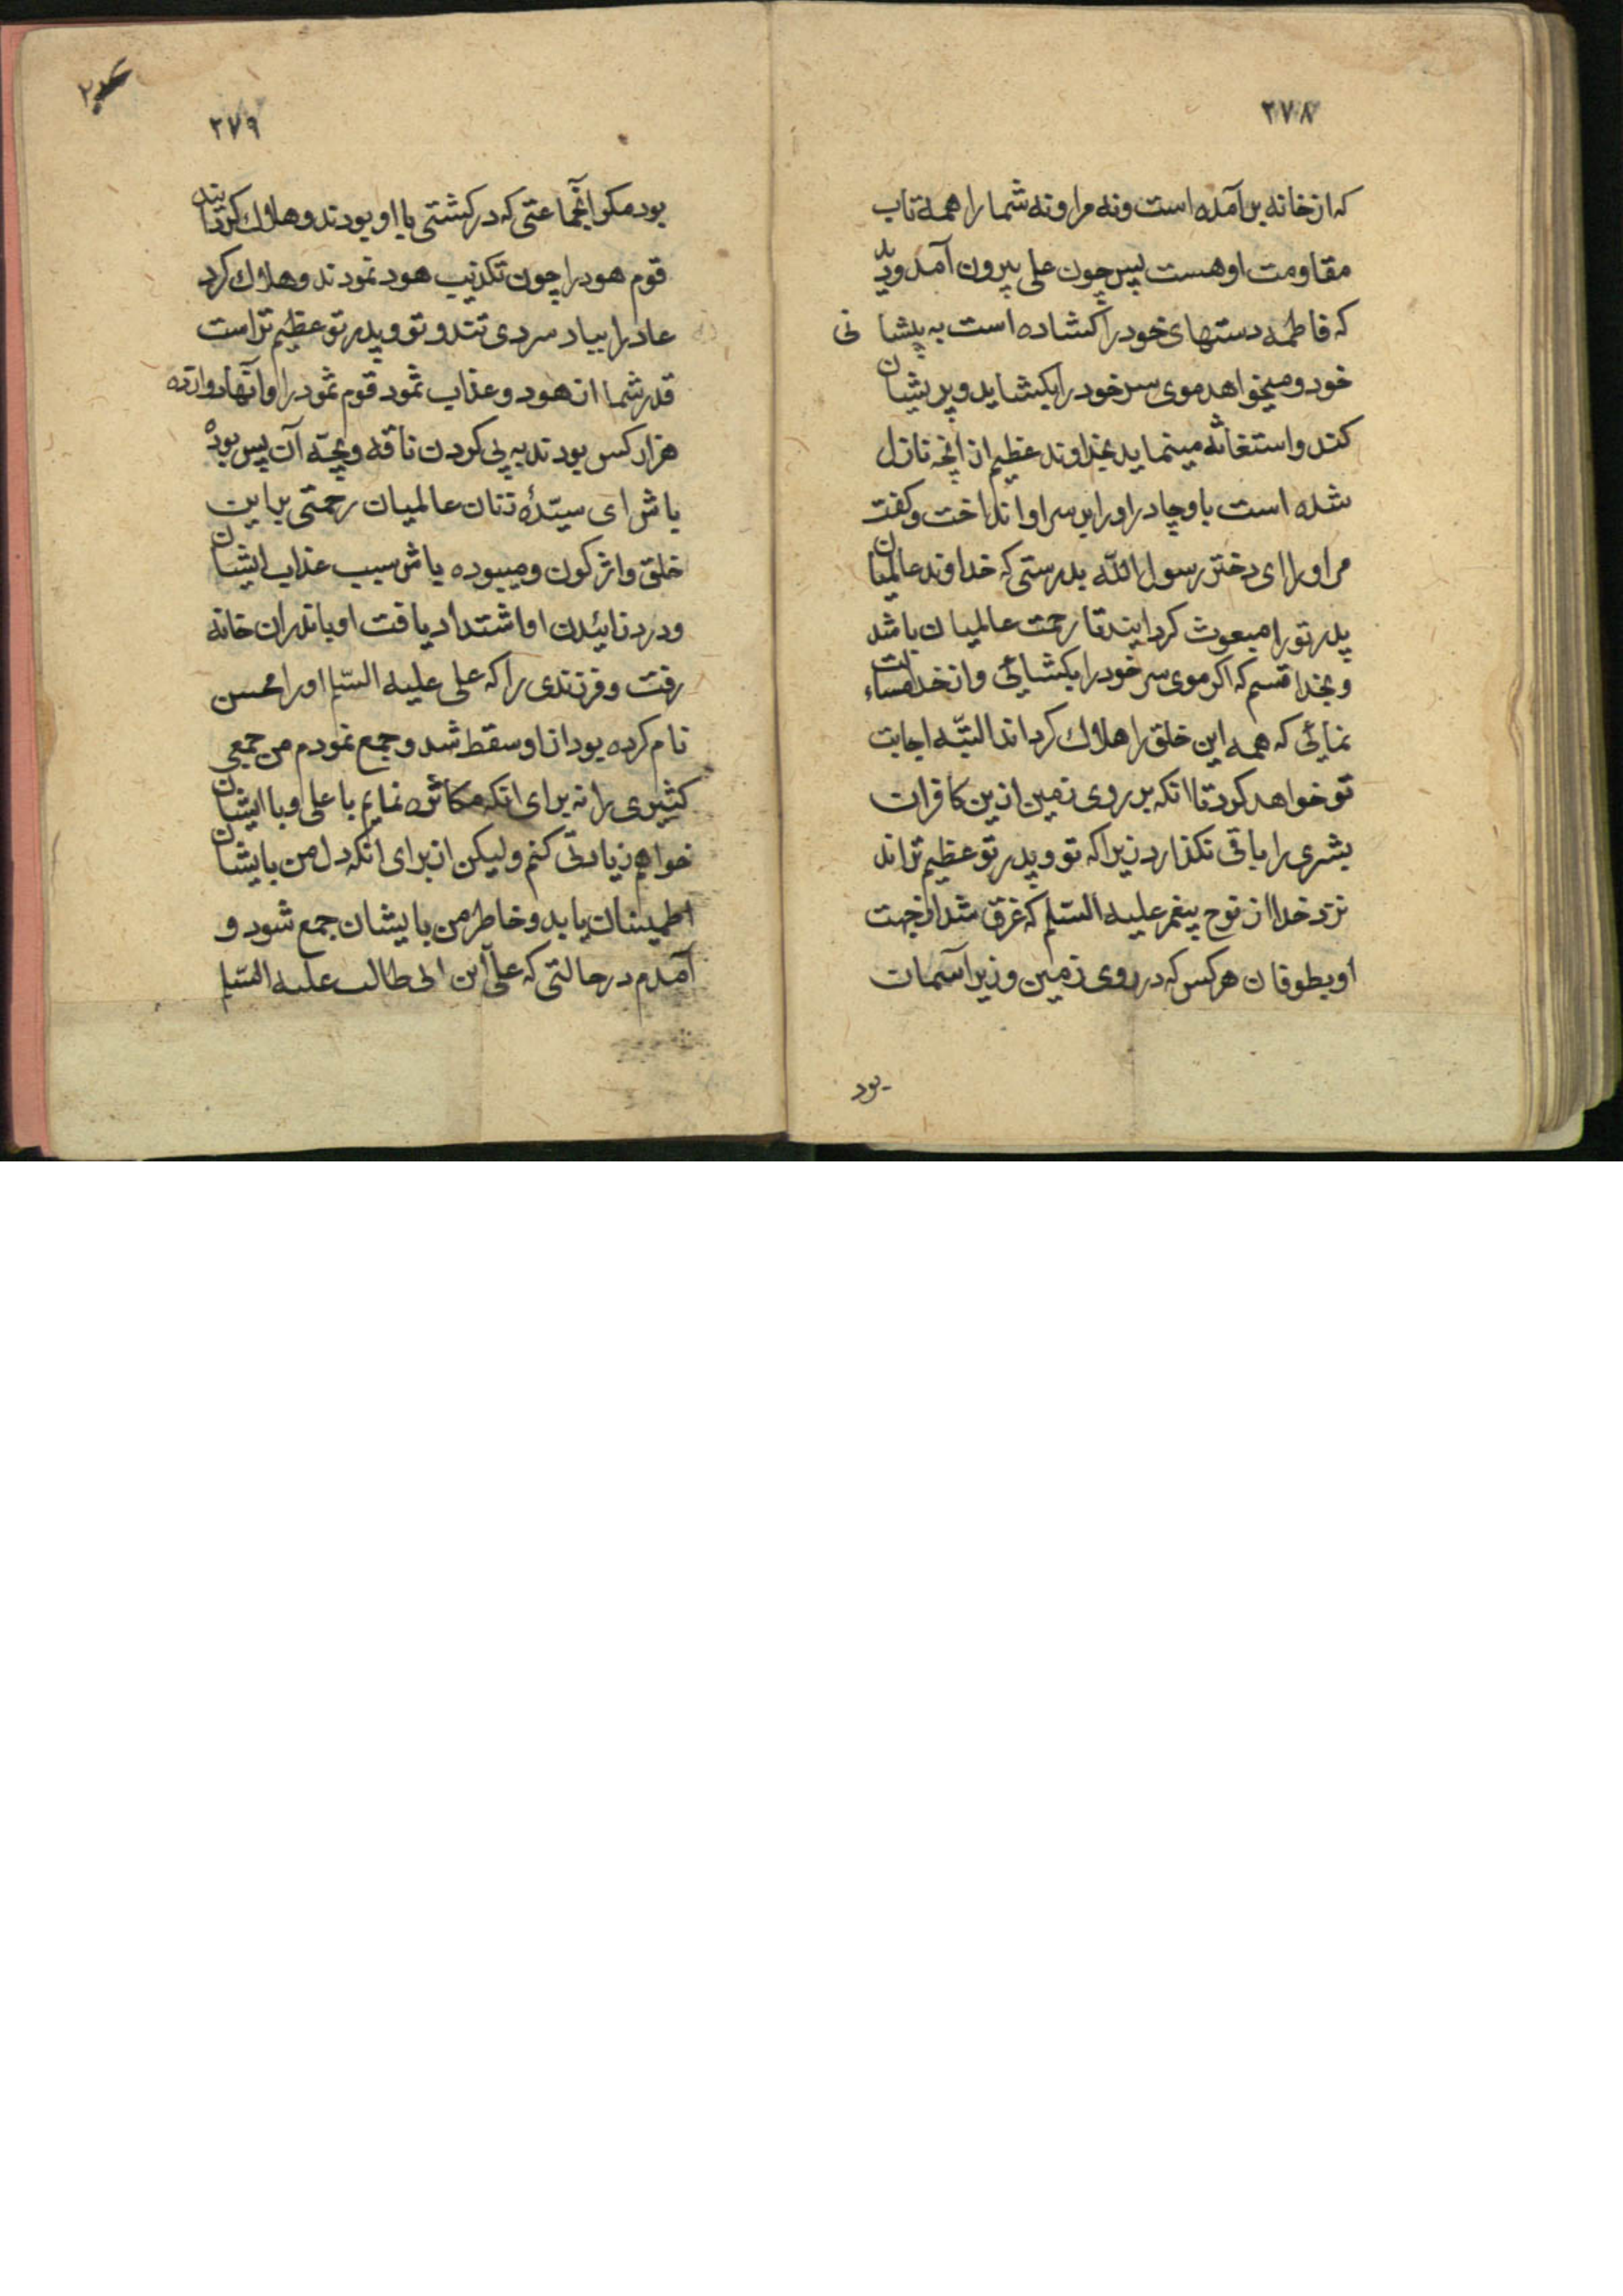 ۲۷۸
که از خانه بر آمده است و نه مرا و نه شما را همه تاب
مقاومت او هست پس چون علی بیرون آمد و دید
که فاطمه دستهای خود را کشاده است به پیشانی
خود و میخواهد موی سر خود را بکشاید و پریشان
کند و استغاثه مینماید بخداوند عظیم از انچه نازل
شده است باو چادر او را بر سر او انداخت و کفت
مر او را ای دختر رسول الله بدرستی که خداوند عالمیان
پدر تو را مبعوث کردانید تا رحمت عالمیان باشد
و بخدا قسم که اکر موی سر خود را بکشائی و از خدا مسالت
نمائی که همه این خلق را هلاک کرداند البتّه اجابت
تو خواهد کرد تا انکه بر روی زمین از ین کافران
بشری را باقی نکذارد زیرا که تو و پدر تو عظیم تراند
نزد خدا از نوح پیغمبر علیه السّلم که غرق شد از جهت
او بطوفان هر کس که در روی زمین و زیر آسمان
بود
۲۷۹
بود مکر آنجماعتی که در کشتی با او بودند و هلاک کردانید
قوم هود را چون تکذیب هود نمودند و هلاک کرد
عاد را بباد سردی تند و تو و پدر تو عظیم تر است
قدر شما از هود و عذاب ثمود قوم ثمود را و آنها دوازده
هزار کس بودند به پی کردن ناقه و بچّه آن پس بوده
باش ای سیّدهٔ زنان عالمیان رحمتی بر این
خلق واژکون و میبوده باش سبب عذاب ایشان
و درد زائیدن او اشتداد یافت او باندران خانه
رفت و فرزندی را که علی علیه السّلم او را محسن
نام کرده بود از او سقط شد و جمع نمودم من جمعی
کثیری را نه برای انکه مکاثره نمایم با علی و با ایشان
خواهم زیادتی کنم ولیکن از برای انکه دل من بایشان
اطمینان یابد و خاطر من بایشان جمع شود و
آمدم در حالتی که علیّ ابن ابی طالب علیه السّلم